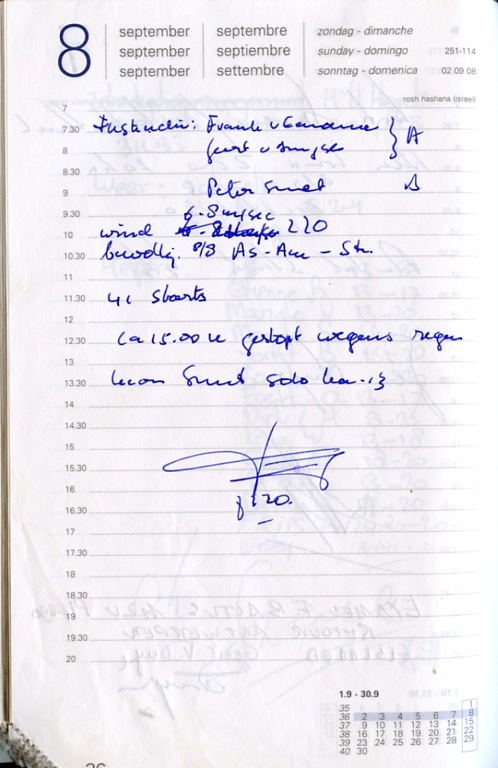 8
september septembre zondag - dimanche
september septiembre sunday - domingo 251-114
september settembre sonntag - domenica 02 09 08
rosh hashana (israel)
7
7.30 Instructie: Frank v } A
8 Gert v
8.30
9 Peter Smet B
9.30 6-8 m/sec
10 wind 220
10.30 8/8 As - Acu - Str.
11
11.30 41 starts
12
12.30 Ca 15.00 u gestopt wegens regen
13
13.30 Smet solo
14
14.30
15
15.30
16
16.30
17
17.30
18
18.30
19
19.30
20
1.9 - 30.9
35 1
36 2 3 4 5 6 7 8
37 9 10 11 12 13 14 15
38 16 17 18 19 20 21 22
39 23 24 25 26 27 28 29
40 30